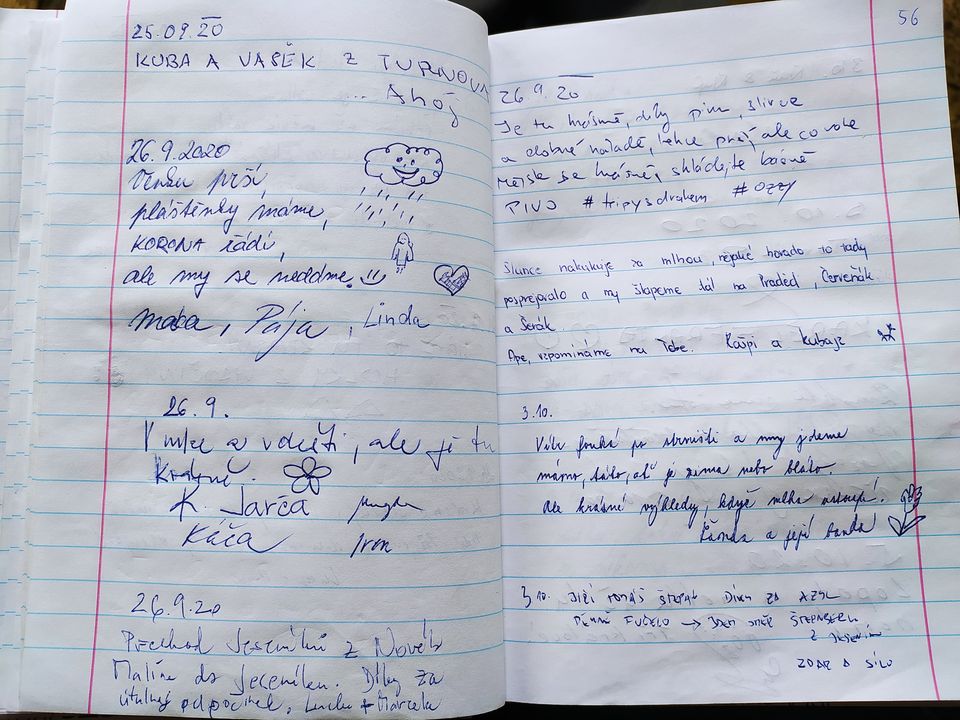 25.09.20
KUBA A VAŠEK z TURNOVA
... Ahoj
26.9.2020
Venku prší,
pláštěnky máme,
KORONA řádí,
ale my se nedáme.
Pája, Linda
26.9.
V mlze a v dešti, ale je tu
krásně.
K. Jarča
Káča
26.9.20
Přechod Jeseníků z Nové
Malíne do Jeseníku. Díky za
útulný odpočinek, + Marcela
56
26.9.20
Je tu krásně, díky pivu, slivce
a dobré náladě, lehce prší, ale co
se krásně, skládejte básně
PIVO #tripysdrakem #OZZY
Slunce nakukuje za mlhou, nějaké hovado to tady
posprejovalo a my šlapeme dál na Praděd, Červeňák
a Šerák.
vzpomínáme na Tebe. Kašpi a
3.10.
Vítr fouká po strništi a my jdeme
mámo, táto, ať je zima nebo bláto.
Ale krásné výhledy, když mlha ustoupí.
a její banda
3.10. JIŘÍ TOMÁŠ ŠTĚPÁN DÍKY ZA AZYL
PĚKNĚ FUČELO → JDEM SMĚR ŠTERNBERK
Z JESENÍKU
ZDAR A SÍLU